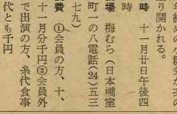 り開かれる。
時　十一月廿日午後四
時
場　梅むら（日本橋室
町一の八電話(24)五三
七九）
費　①会員の方、十、
十一月分千円②会員外
で出演の方、糸代食事
代とも千円